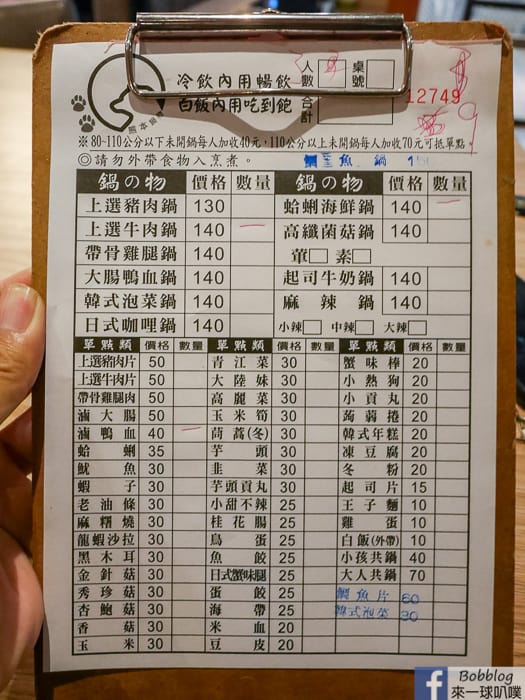 冷飲內用暢飲 人數 桌號
白飯內用吃到飽 合計
12749
※80~110公分以下未開鍋每人加收40元，110公分以上未開鍋每人加收70元可抵單點。
◎請勿外帶食物入烹煮。
鍋の物 價格 數量 鍋の物 價格 數量
上選豬肉鍋 130 蛤蜊海鮮鍋 140
上選牛肉鍋 140 高纖菌菇鍋 140
帶骨雞腿鍋 140 葷□ 素□
大腸鴨血鍋 140 起司牛奶鍋 140
韓式泡菜鍋 140 麻辣鍋 140
日式咖哩鍋 140 小辣□ 中辣□ 大辣□
單點類 價格 數量 單點類 價格 數量 單點類 價格 數量
上選豬肉片 50 青江菜 30 蟹味棒 20
上選牛肉片 50 大陸妹 30 小熱狗 20
帶骨雞腿肉 50 高麗菜 30 小貢丸 20
滷大腸 50 玉米筍 30 蒟蒻捲 20
滷鴨血 40 茼蒿(冬) 30 韓式年糕 20
蛤蜊 35 芋頭 30 凍豆腐 20
魷魚 30 韭菜 30 冬粉 20
蝦子 30 芋頭貢丸 30 起司片 15
老油條 30 小甜不辣 25 王子麵 10
麻糬燒 30 桂花腸 25 雞蛋 10
龍蝦沙拉 30 鳥蛋 25 白飯(外帶) 10
黑木耳 30 魚餃 25 小孩共鍋 40
金針菇 30 日式蟹味腿 25 大人共鍋 70
秀珍菇 30 蛋餃 25 鯛魚片 60
杏鮑菇 30 海帶 25 韓式泡菜 30
香菇 30 米血 20
玉米 30 豆皮 20
Bobblog
來一球叭噗